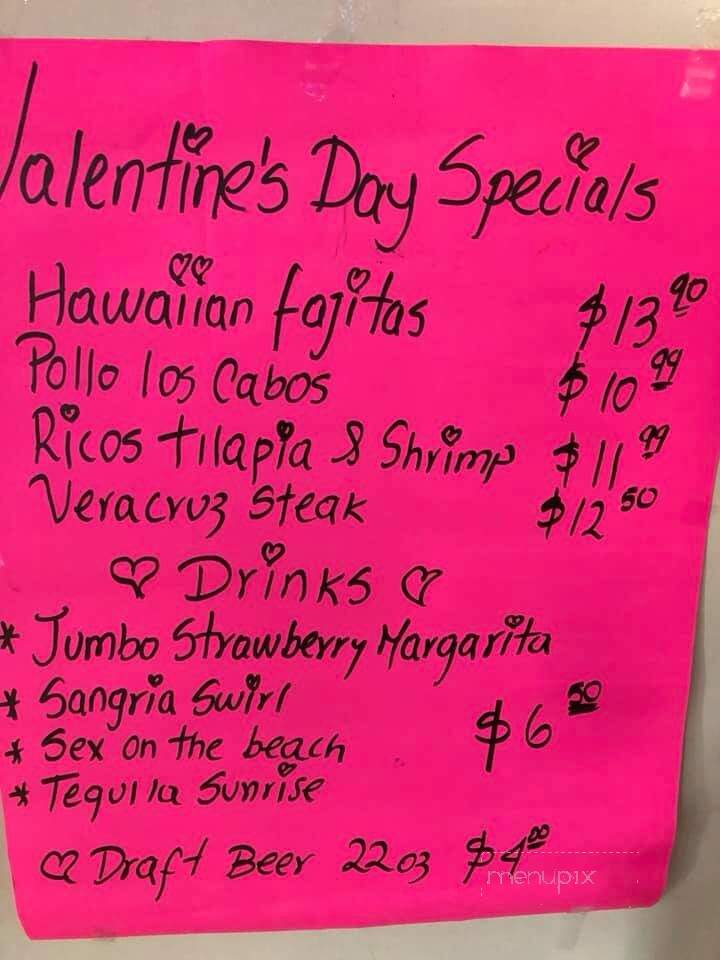 Valentine's Day Specials
Hawaiian fajitas $13 90
Pollo los Cabos $10 99
Ricos tilapia & Shrimp $11 99
Veracruz Steak $12 50
Drinks
* Jumbo Strawberry Margarita
* Sangria Swirl
$6 50
* Sex on the beach
* Tequila Sunrise
Draft Beer 22oz $4 00
menupix